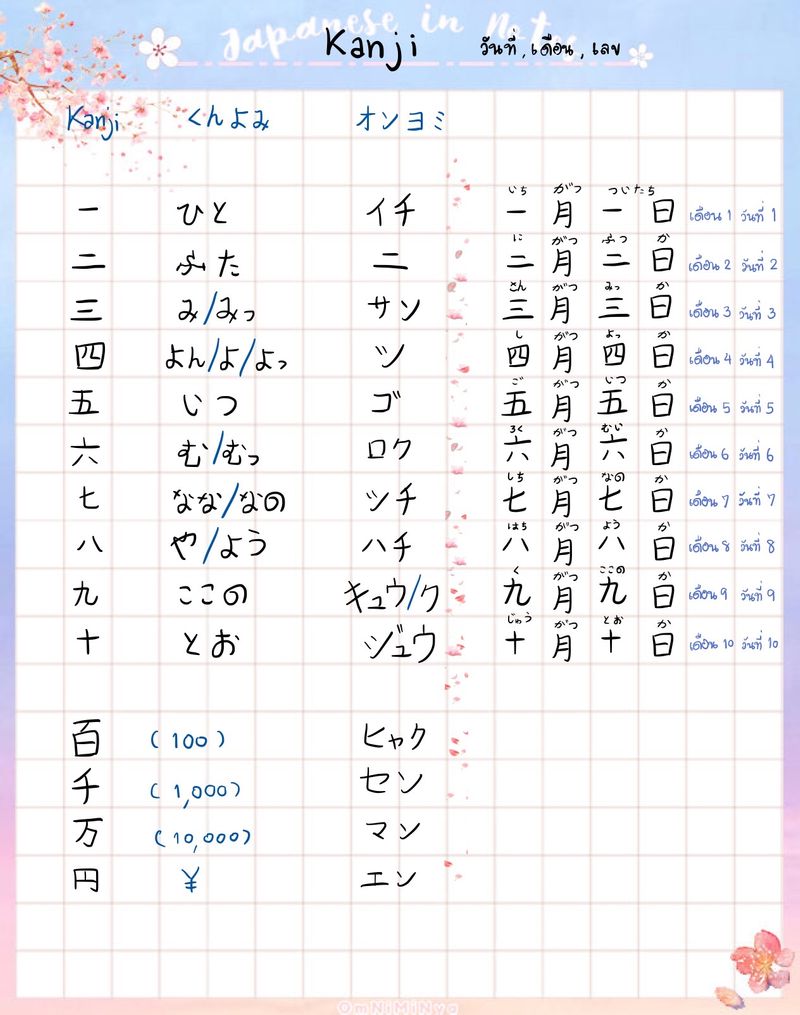 Japanese in Notes
Kanji วันที่, เดือน, เลข
Kanji くんよみ オンヨミ
いち がつ ついたち
一 ひと イチ 一月 一日 เดือน 1 วันที่ 1
に がつ ふつ か
二 ふた ニ 二月 二日 เดือน 2 วันที่ 2
さん がつ みっ か
三 み/みっ サン 三月 三日 เดือน 3 วันที่ 3
し がつ よっ か
四 よん/よ/よっ ツ 四月 四日 เดือน 4 วันที่ 4
ご がつ いつ か
五 いつ ゴ 五月 五日 เดือน 5 วันที่ 5
ろく がつ むい か
六 む/むっ ロク 六月 六日 เดือน 6 วันที่ 6
しち がつ なの か
七 なな/なの ツチ 七月 七日 เดือน 7 วันที่ 7
はち がつ よう か
八 や/よう ハチ 八月 八日 เดือน 8 วันที่ 8
く がつ ここの か
九 ここの キュウ/ク 九月 九日 เดือน 9 วันที่ 9
じゅう がつ とお か
十 とお ジュウ 十月 十日 เดือน 10 วันที่ 10
百 (100) ヒャク
千 (1,000) セン
万 (10,000) マン
円 ¥ エン
OmNiMiNyo